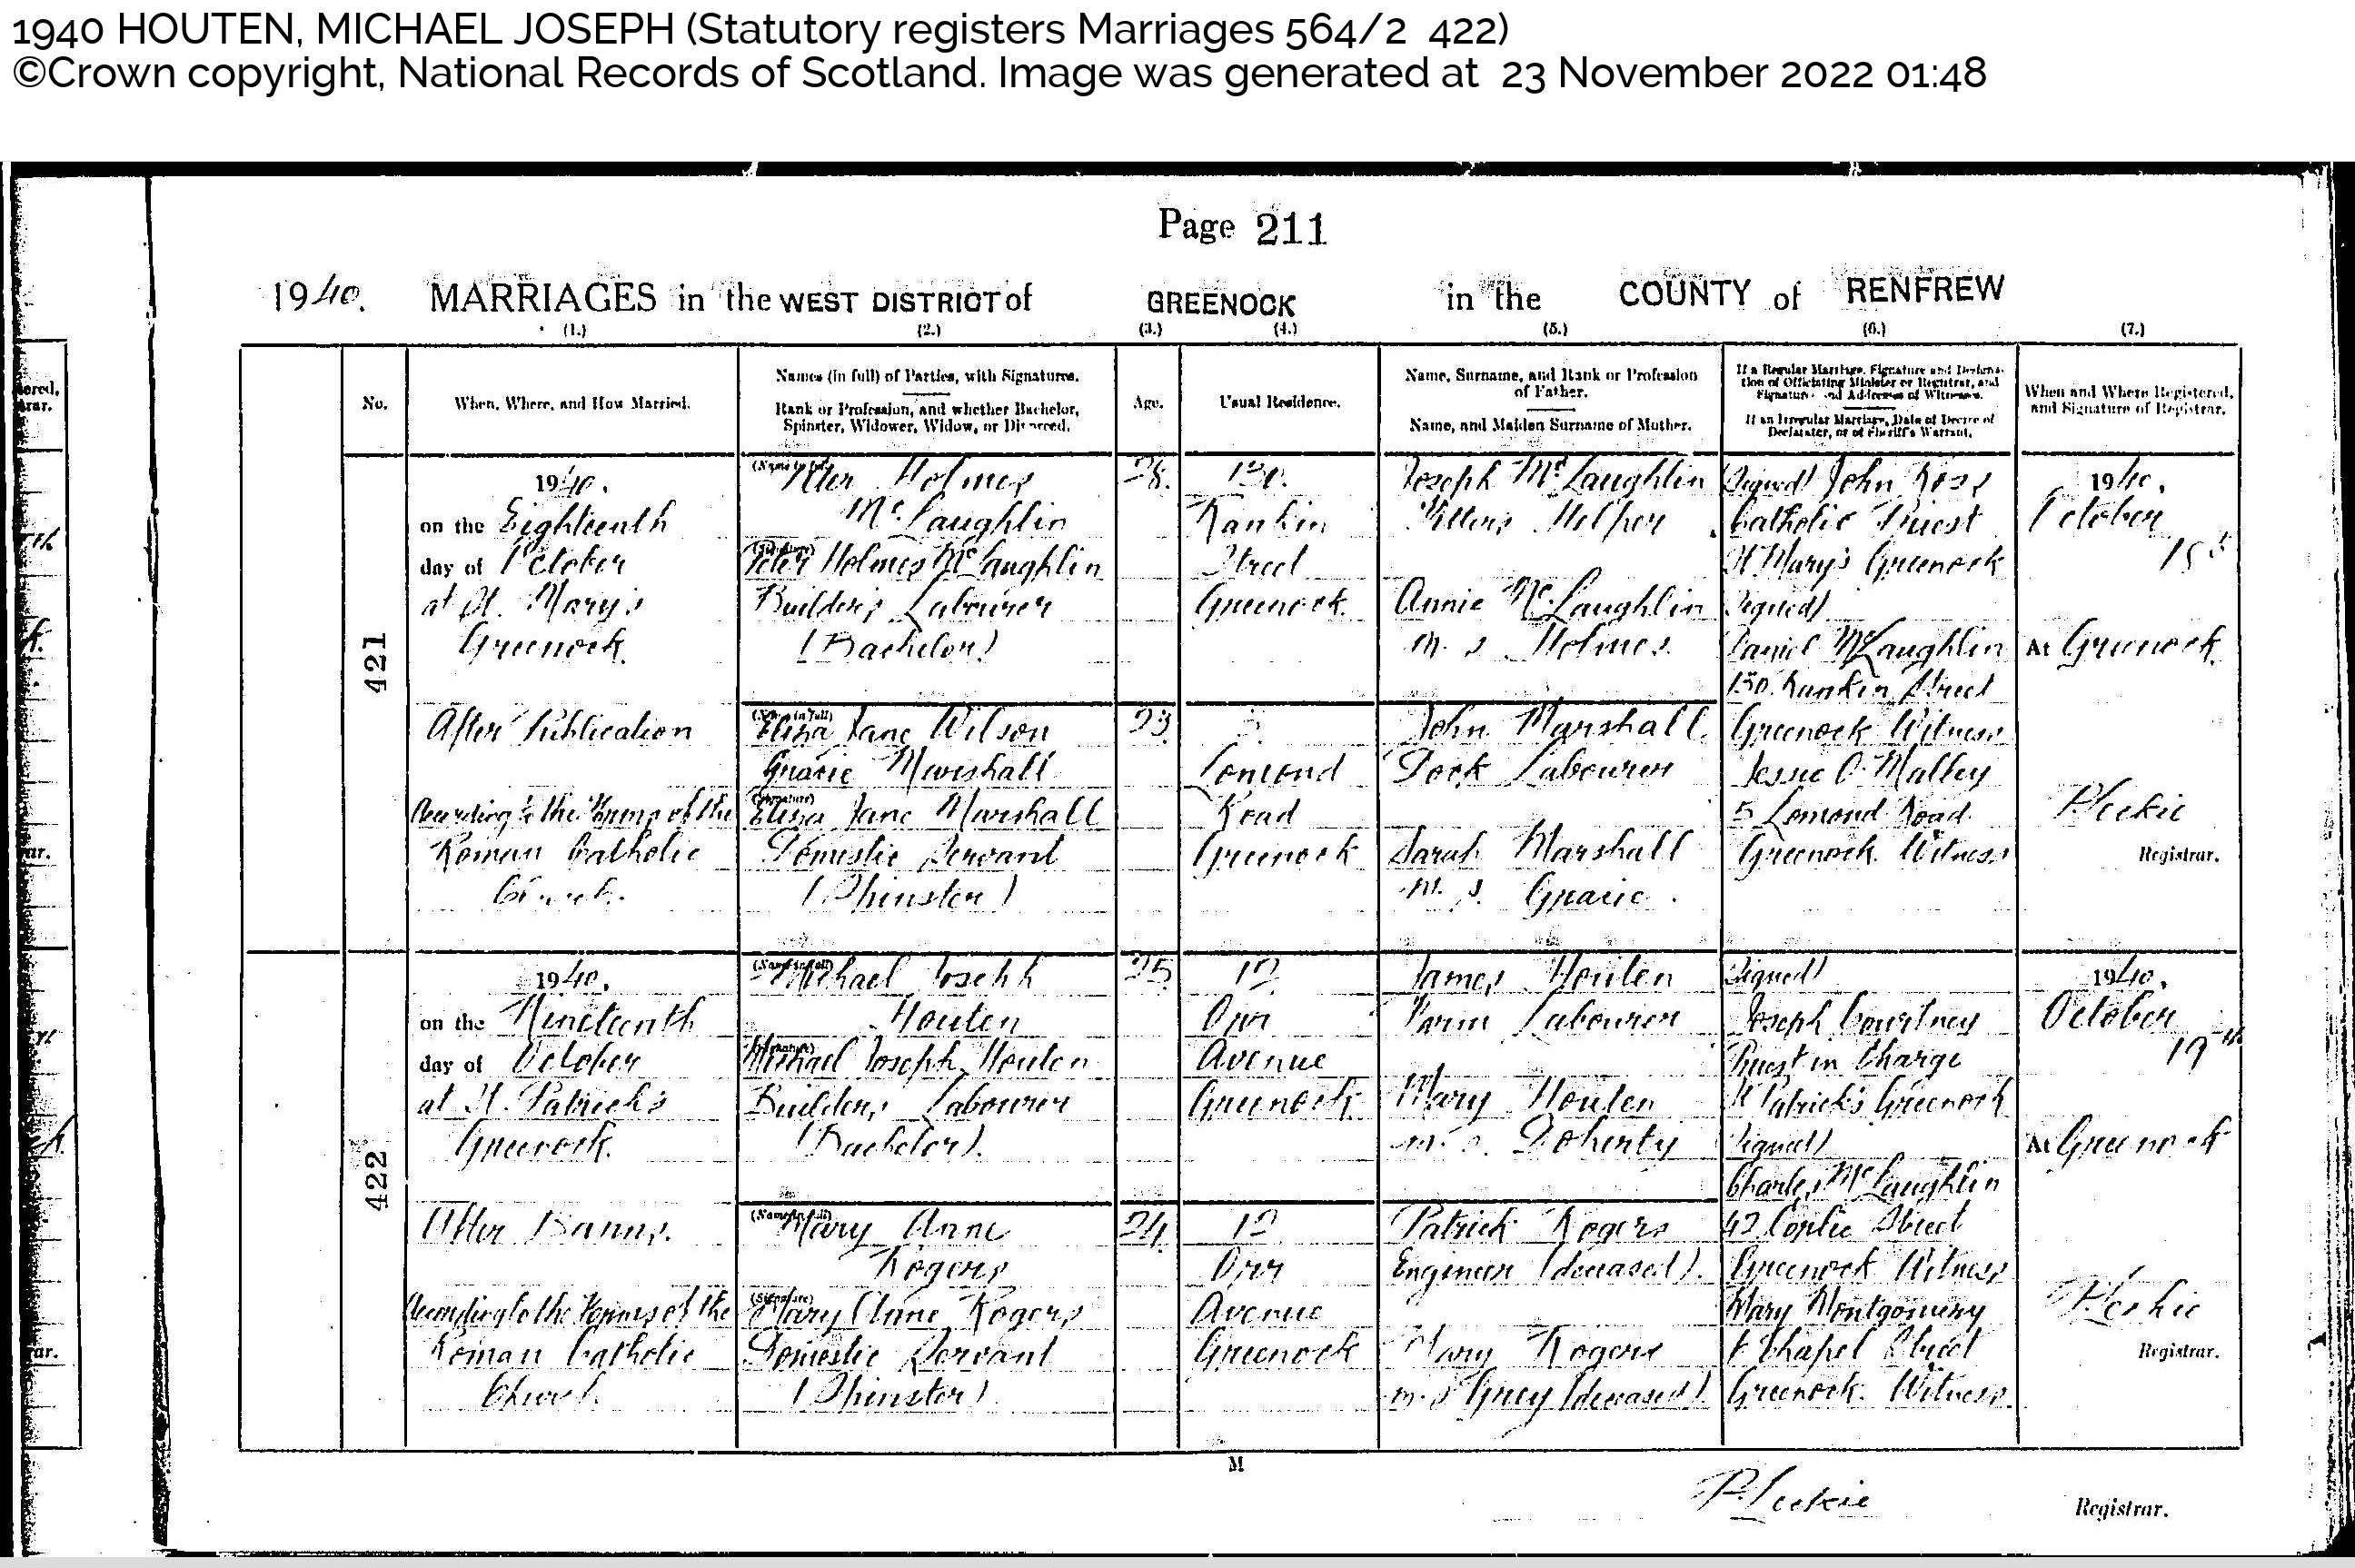 1940 HOUTEN, MICHAEL JOSEPH (Statutory registers Marriages 564/2 422)
©Crown copyright, National Records of Scotland. Image was generated at 23 November 2022 01:48
Page 211
1940. MARRIAGES in the WEST DISTRICT of GREENOCK in the COUNTY of RENFREW
(1.) (2.) (3.) (4.) (5.) (6.) (7.)
No.
When, Where, and How Married.
Names (in full) of Parties, with Signatures.
Rank or Profession, and whether Bachelor,
Spinster, Widower, Widow, or Divorced.
Age.
Usual Residence.
Name, Surname, and Rank or Profession
of Father.
Name, and Maiden Surname of Mother.
If a Regular Marriage, Signature and Designa-
tion of Officiating Minister or Registrar, and
Signatures and Addresses of Witnesses.
If an Irregular Marriage, Date of Decree of
Declarator, or of Sheriff's Warrant.
When and Where Registered,
and Signature of Registrar.
421
1940.
on the Eighteenth
day of October
at St. Mary's
Greenock.
After Publication
According to the Forms of the
Roman Catholic
Church.
(Name in full)
Peter Holmes
McLaughlin
(Signature)
Peter Holmes McLaughlin
Builder's Labourer
(Bachelor)
28.
130.
Rankin
Street
Greenock.
Joseph McLaughlin
Helper
Annie McLaughlin
m. s. Holmes.
(Signed) John Ross
Catholic Priest
St Mary's Greenock
(Signed)
Daniel McLaughlin
130. Rankin Street
Greenock Witness
Jessie O'Malley
5 Lomond Road.
Greenock. Witness
1940.
October
At Greenock
P. Leckie
Registrar.
(Name in full)
Eliza Jane Wilson
Gracie Marshall
(Signature)
Eliza Jane Marshall
Domestic Servant
(Spinster)
23.
5
Lomond
Road
Greenock
John Marshall
Dock Labourer
Sarah Marshall
m. s. Gracie.
422
1940.
on the Nineteenth
day of October
at St. Patrick's
Greenock.
After Banns.
According to the Forms of the
Roman Catholic
Church.
(Name in full)
Michael Joseph
Houten
(Signature)
Michael Joseph Houten
Builder's Labourer
(Bachelor).
25
12
Orr
Avenue
Greenock.
James Houten
Farm Labourer
Mary Houten
m. s. Doherty
(Signed)
Joseph Courtney
Priest in Charge
St Patrick's Greenock
(Signed)
Charles McLaughlin
Street
Greenock Witness
Mary Montgomery
Chapel Street
Greenock. Witness.
1940.
October
19th
At Greenock
P. Leckie
Registrar.
(Name in full)
Mary Anne
Rogers
(Signature)
Mary Anne Rogers
Domestic Servant
(Spinster)
24
12
Orr
Avenue
Greenock
Patrick Rogers
Engineer (deceased).
Mary Rogers
m. s. Grey (deceased).
M
P. Leckie
Registrar.